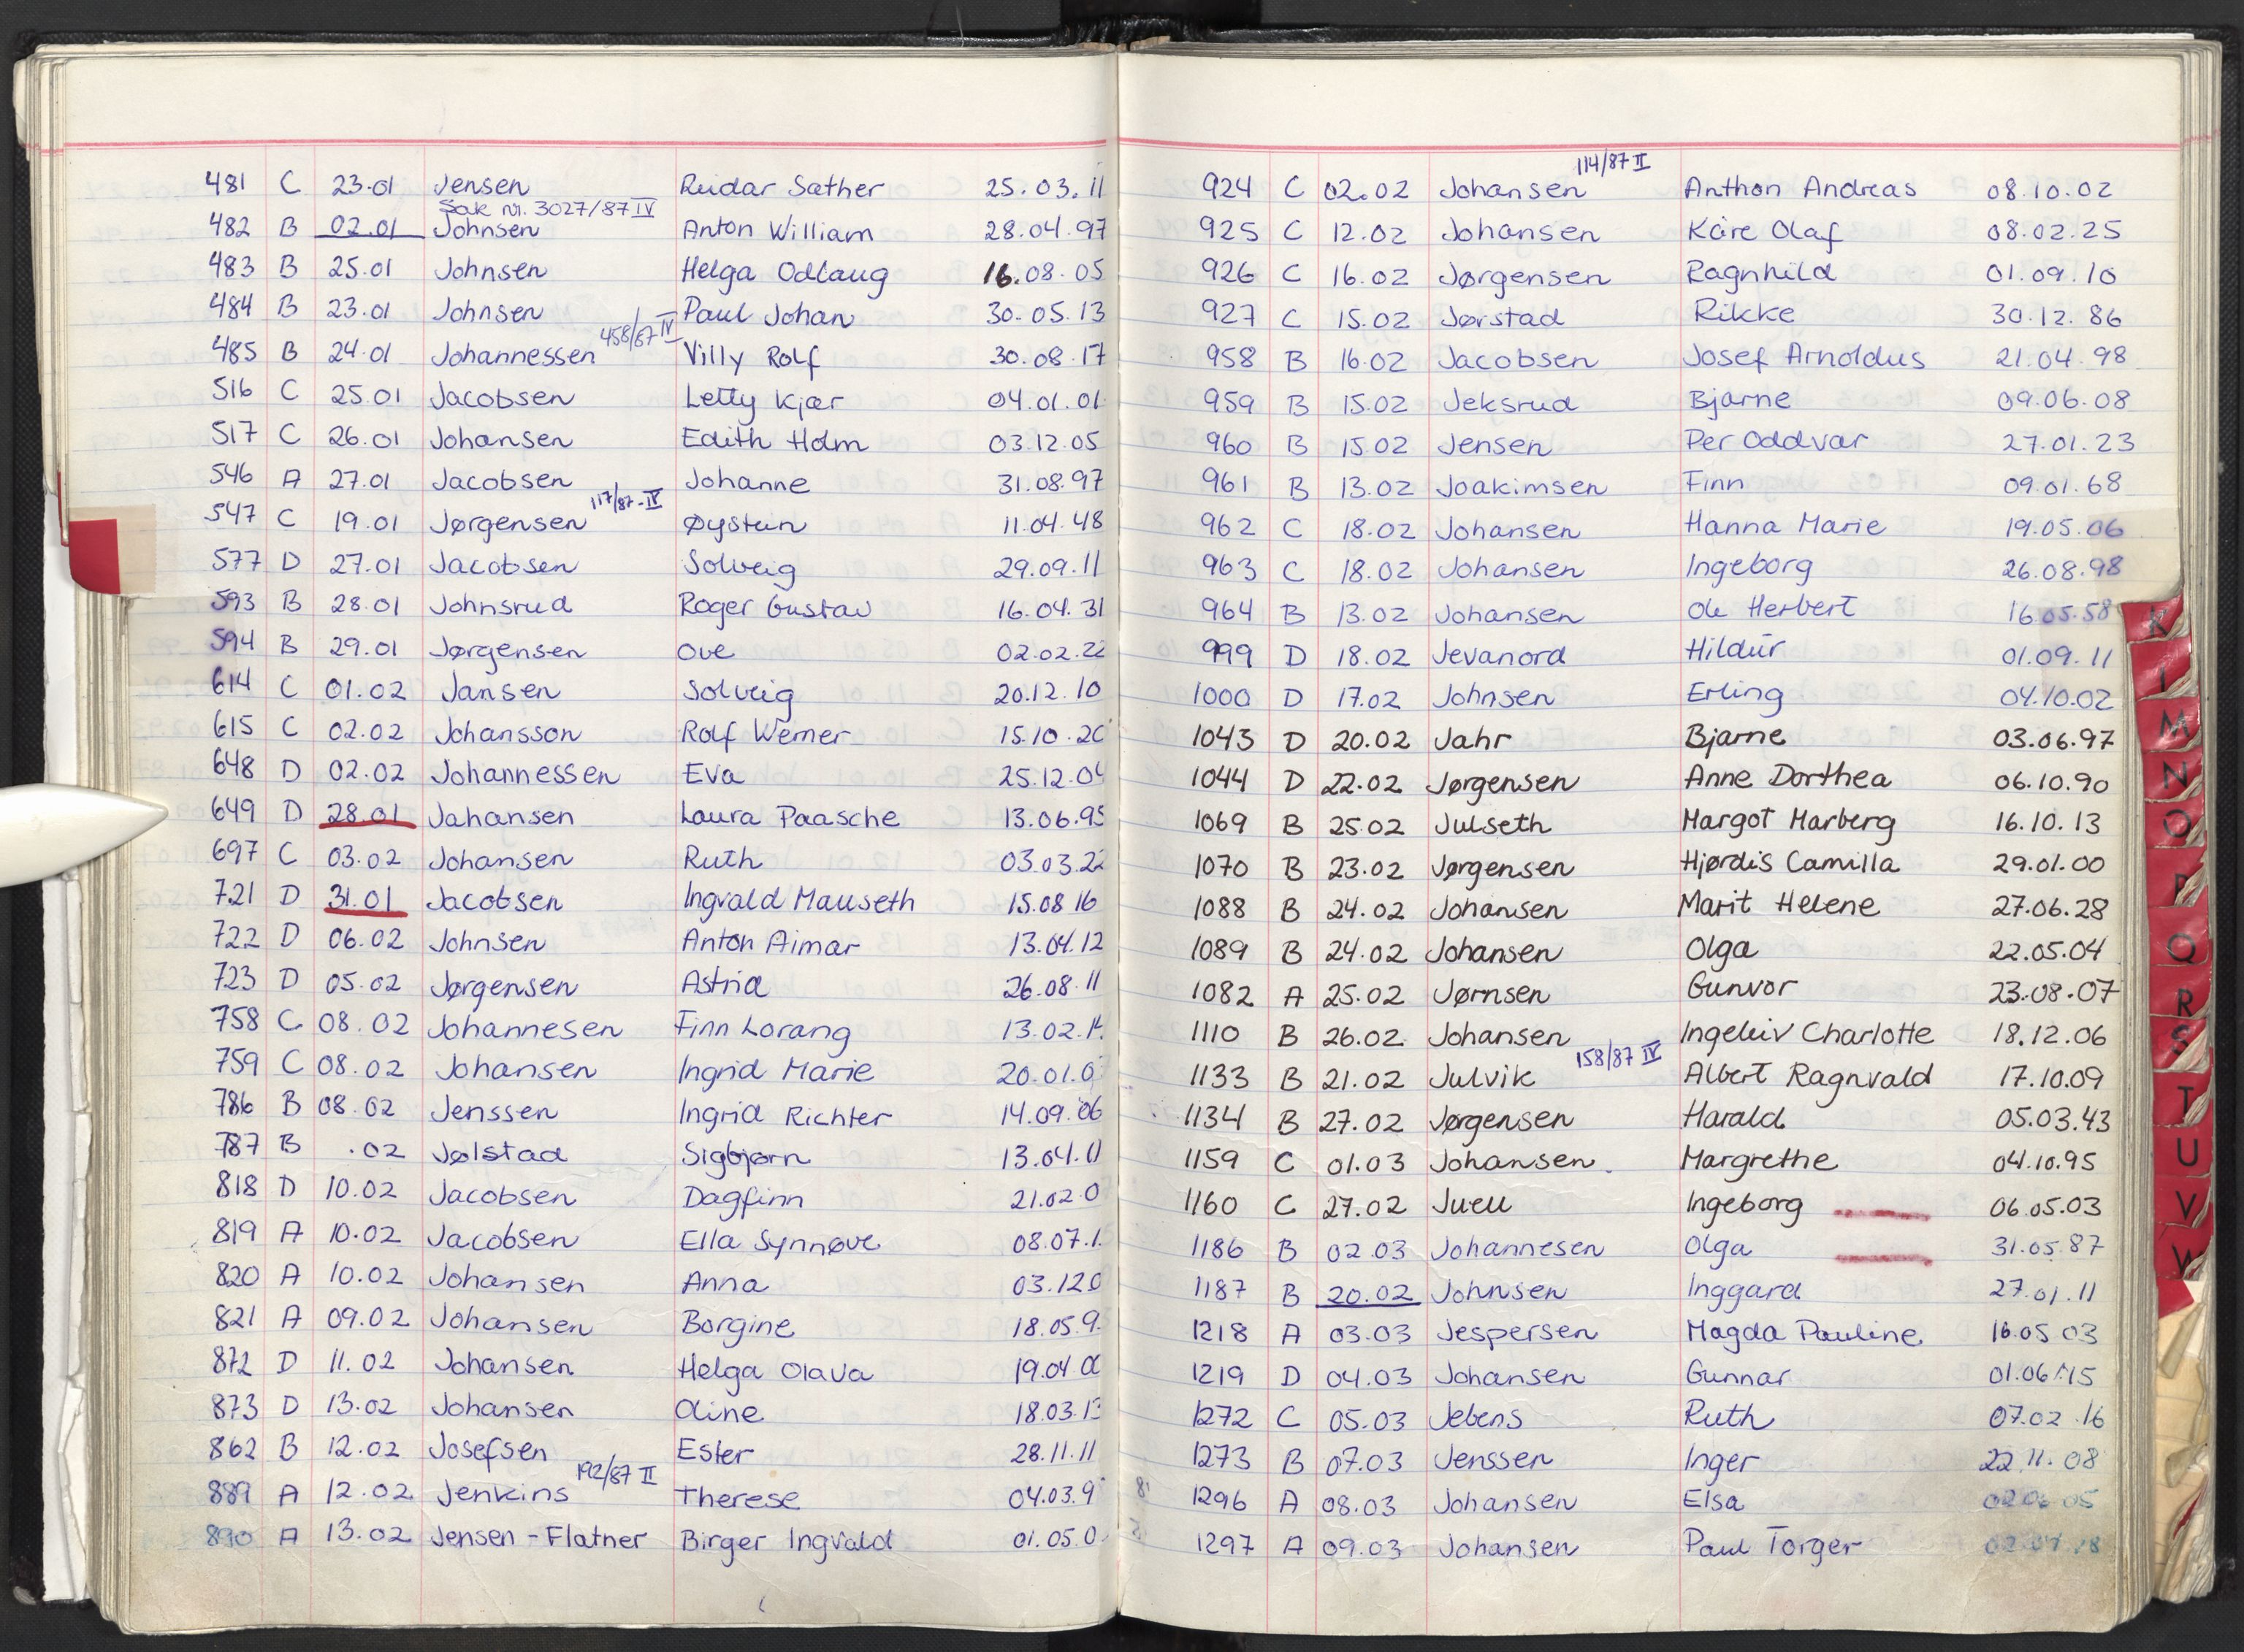 481 C 23.01 Jensen Reidar Sæther 25.03.11
Sak nr. 3027/87 IV
482 B 02.01 Johnsen Anton William 28.04.97
483 B 25.01 Johnsen Helga Odlaug 16.08.05
484 B 23.01 Johnsen Paul Johan 30.05.13
458/87 IV
485 B 24.01 Johannessen Villy Rolf 30.08.17
516 C 25.01 Jacobsen Letty Kjær 04.01.01
517 C 26.01 Johansen Edith Holm 03.12.05
546 A 27.01 Jacobsen Johanne 31.08.97
117/87-IV
547 C 19.01 Jørgensen Øystein 11.04.48
577 D 27.01 Jacobsen Solveig 29.09.11
593 B 28.01 Johnsrud Roger Gustav 16.04.31
594 B 29.01 Jørgensen Ove 02.02.22
614 C 01.02 Jansen Solveig 20.12.10
615 C 02.02 Johansson Rolf Werner 15.10.20
648 D 02.02 Johannessen Eva 25.12.04
649 D 28.01 Jahansen Laura Paasche 13.06.95
697 C 03.02 Johansen Ruth 03.03.22
721 D 31.01 Jacobsen Ingvald Mauseth 15.08 16
722 D 06.02 Johnsen Anton Aimar 13.04.12
723 D 05.02 Jørgensen Astrid 26.08.11
758 C 08.02 Johannesen Finn Lorang 13.02.
759 C 08.02 Johansen Ingrid Marie 20.01.0
786 B 08.02 Jenssen Ingrid Richter 14.09.06
787 B .02 Jølstad Sigbjørn 13.04.11
818 D 10.02 Jacobsen Dagfinn 21.02.0
819 A 10.02 Jacobsen Ella Synnøve 08.07.1
820 A 10.02 Johansen Anna 03.12.0
821 A 09.02 Johansen Borgine 18.05.9
872 D 11.02 Johansen Helga Olava 19.04.0
873 D 13.02 Johansen Oline 18.03.13
862 B 12.02 Josefsen Ester 28.11.11
192/87 II
889 A 12.02 Jenkins Therese 04.03.9
890 A 13.02 Jensen-Flatner Birger Ingvald 01.05.0
114/87 II
924 C 02.02 Johansen Anthon Andreas 08.10.02
925 C 12.02 Johansen Kåre Olaf 08.02.25
926 C 16.02 Jørgensen Ragnhild 01.09.10
927 C 15.02 Jørstad Rikke 30.12.86
958 B 16.02 Jacobsen Josef Arnoldus 21.04.98
959 B 15.02 Jeksrud Bjarne 09.06.08
960 B 15.02 Jensen Per Oddvar 27.01.23
961 B 13.02 Joakimsen Finn 09.01.68
962 C 18.02 Johansen Hanna Marie 19.05.06
963 C 18.02 Johansen Ingeborg 26.08.98
964 B 13.02 Johansen Ole Herbert 16.05.58
999 D 18.02 Jevanord Hildur 01.09.11
1000 D 17.02 Johnsen Erling 04.10.02
1043 D 20.02 Jahr Bjarne 03.06.97
1044 D 22.02 Jørgensen Anne Dorthea 06.10.90
1069 B 25.02 Julseth Margot Marberg 16.10.13
1070 B 23.02 Jørgensen Hjørdis Camilla 29.01.00
1088 B 24.02 Johansen Marit Helene 27.06.28
1089 B 24.02 Johansen Olga 22.05.04
1082 A 25.02 Jørnsen Gunvor 23.08.07
1110 B 26.02 Johansen Ingeliv Charlotte 18.12.06
158/87 IV
1133 B 21.02 Julvik Albert Ragnvald 17.10.09
1134 B 27.02 Jørgensen Harald 05.03.43
1159 C 01.03 Johansen Margrethe 04.10.95
1160 C 27.02 Juell Ingeborg 06.05.03
1186 B 02.03 Johannesen Olga 31.05.87
1187 B 20.02 Johnsen Inggard 27.01.11
1218 A 03.03 Jespersen Magda Pauline 16.05 03
1219 D 04.03 Johansen Gunnar 01.06.15
1272 C 05.03 Jebens Ruth 07.02.16
1273 B 07.03 Jenssen Inger 22.11.08
1296 A 08.03 Johansen Elsa 02.06 05
1297 A 09.03 Johansen Paul Torger
K
L
M
N
O
P
Q
R
S
T
U
V
W